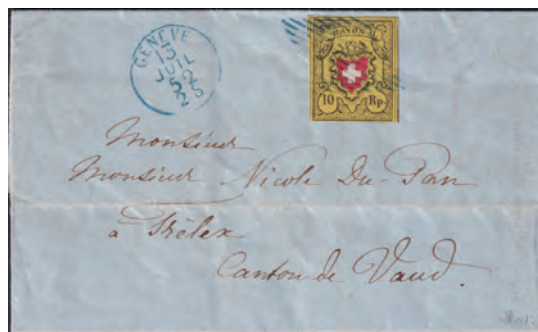 GENÈVE
13
JUIL
52
RAYON
10 Rp.
Monsieur
Monsieur Nicole Du-Pan
à Trélex
Canton de Vaud.